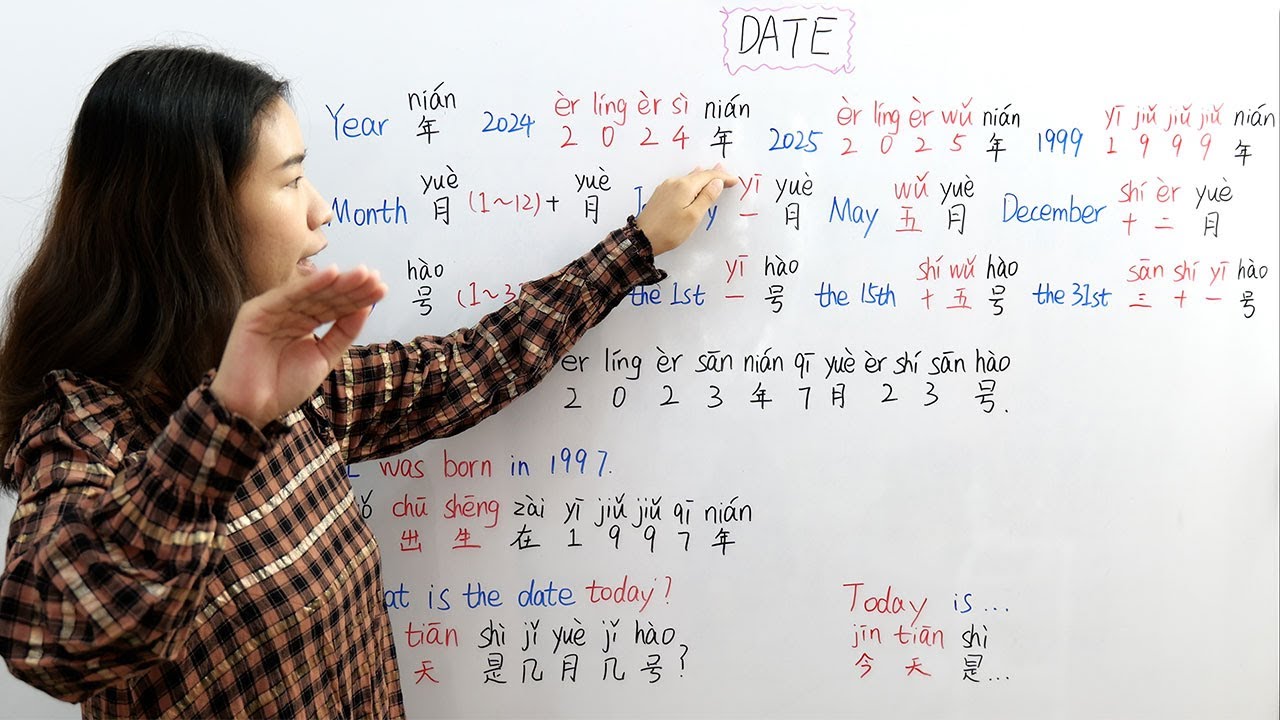 DATE
nián èr líng èr sì nián èr líng èr wǔ nián yī jiǔ jiǔ jiǔ nián
Year 年 2024 2 0 2 4 年 2025 2 0 2 5 年 1999 1 9 9 9 年
yuè yuè yī yuè wǔ yuè shí èr yuè
Month 月 (1~12)+ 月 一 月 May 五 月 December 十 二 月
hào yī hào shí wǔ hào sān shí yī hào
号 (1~3 the 1st 一 号 the 15th 十 五 号 the 31st 三 十 一 号
èr líng èr sān nián qī yuè èr shí sān hào
2 0 2 3 年 7 月 2 3 号.
was born in 1997.
chū shēng zài yī jiǔ jiǔ qī nián
出 生 在 1 9 9 7 年
at is the date today? Today is ...
tiān shì jǐ yuè jǐ hào jīn tiān shì
天 是 几 月 几 号? 今 天 是...